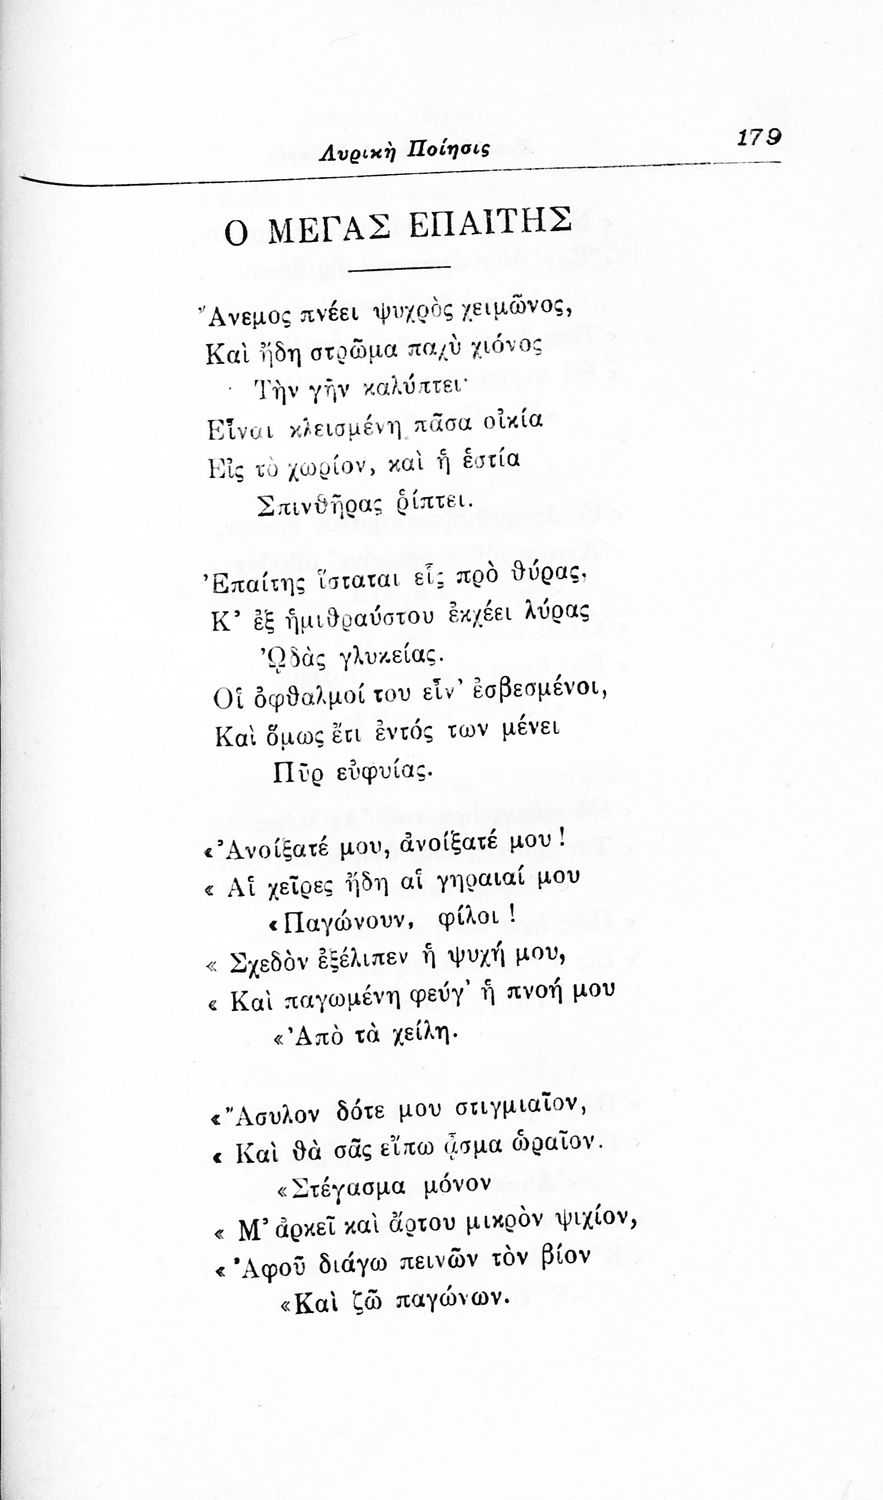 Λυρικὴ Ποίησις 179
Ο ΜΕΓΑΣ ΕΠΑΙΤΗΣ
Ἄνεμος πνέει ψυχρὸς χειμῶνος,
Καὶ ἤδη στρῶμα παχὺ χιόνος
Τὴν γῆν καλύπτει·
Εἶναι κλεισμένη πᾶσα οἰκία
Εἰς τὸ χωρίον, καὶ ἡ ἑστία
Σπινθῆρας ῥίπτει.
Ἐπαίτης ἵσταται εἷς πρὸ θύρας,
Κ’ ἐξ ἡμιθραύστου ἐκχέει λύρας
ᾨδὰς γλυκείας.
Οἱ ὀφθαλμοί του εἶν’ ἐσβεσμένοι,
Καὶ ὅμως ἔτι ἐντός των μένει
Πῦρ εὐφυίας.
«Ἀνοίξατέ μου, ἀνοίξατέ μου!
« Αἱ χεῖρες ἤδη αἱ γηραιαί μου
«Παγώνουν, φίλοι!
« Σχεδὸν ἐξέλιπεν ἡ ψυχή μου,
« Καὶ παγωμένη φεύγ’ ἡ πνοή μου
«Ἀπὸ τὰ χείλη.
«Ἄσυλον δότε μου στιγμιαῖον,
« Καὶ θὰ σᾶς εἴπω ᾆσμα ὡραῖον.
«Στέγασμα μόνον
« Μ’ ἀρκεῖ καὶ ἄρτου μικρὸν ψιχίον,
« Ἀφοῦ διάγω πεινῶν τὸν βίον
«Καὶ ζῶ παγώνων.